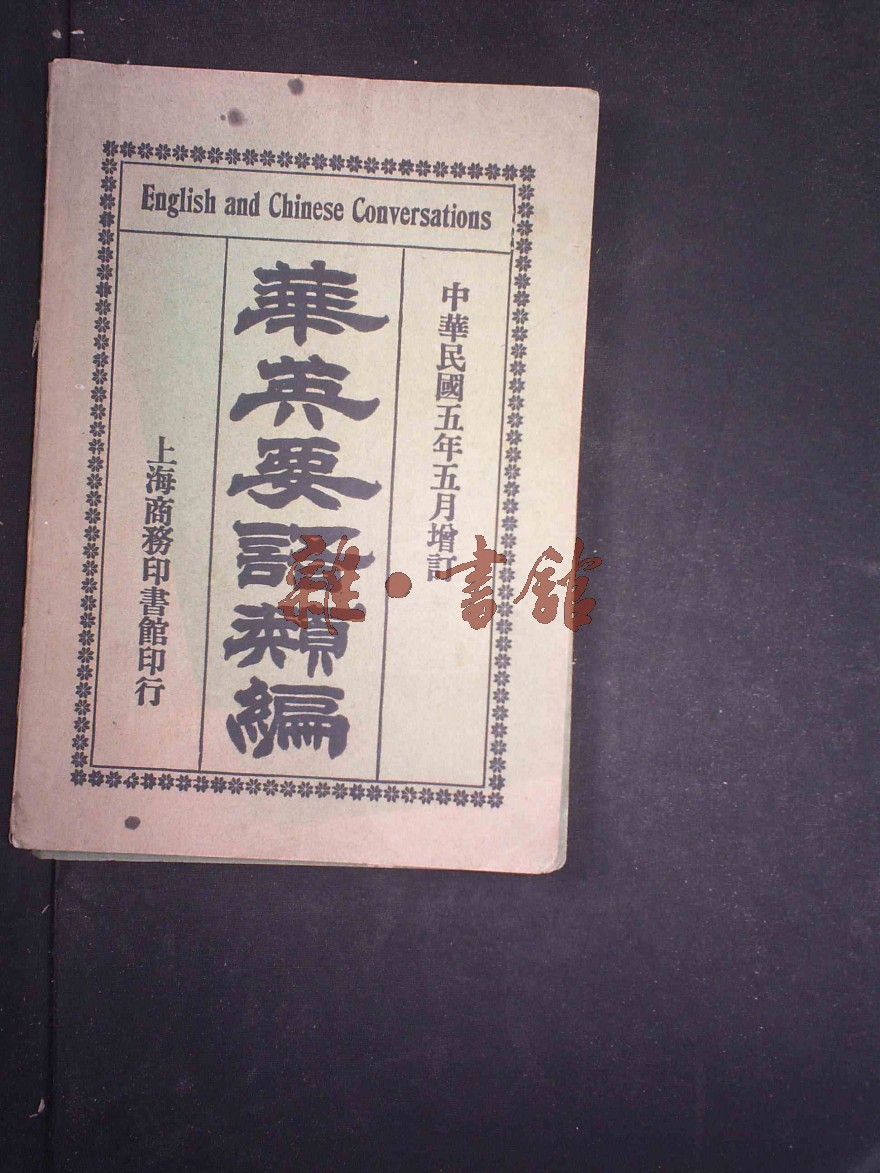 English and Chinese Conversations
中華民國五年五月增訂
華英要語類編
上海商務印書館印行
雜·書館